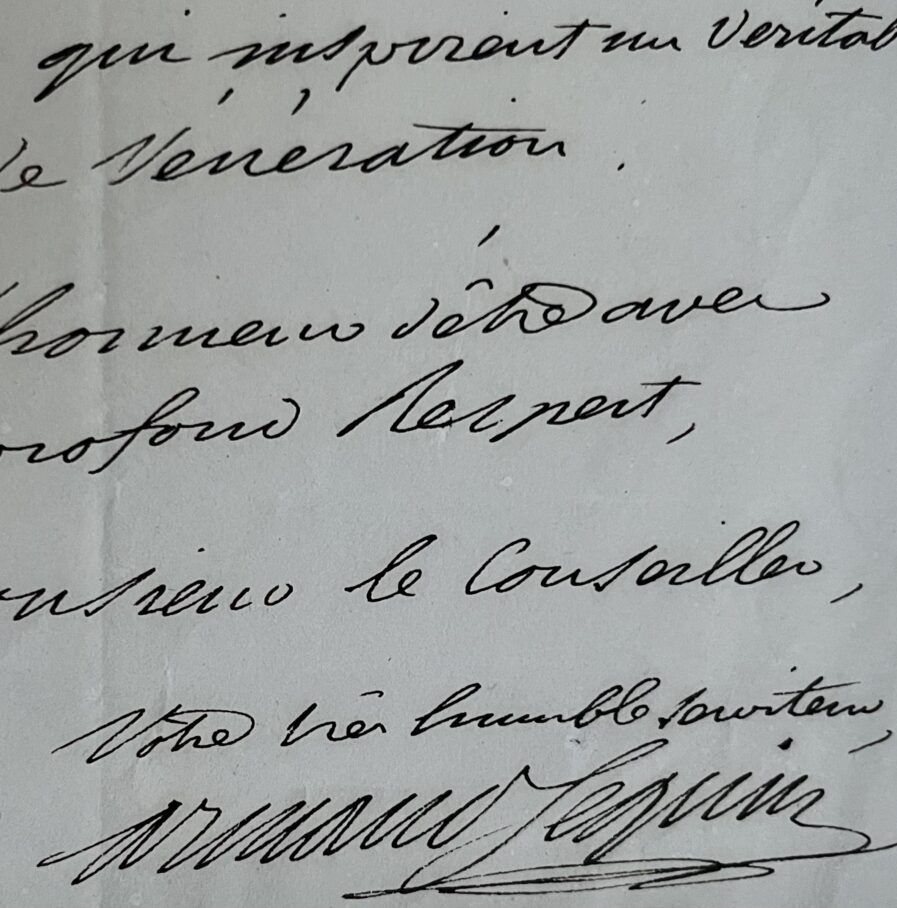 qui inspirent un véritab
de Vénération.
'honneur d'être avec
profond Respect,
onsieur le Conseiller,
Votre très humble serviteur,
Armand Sequin